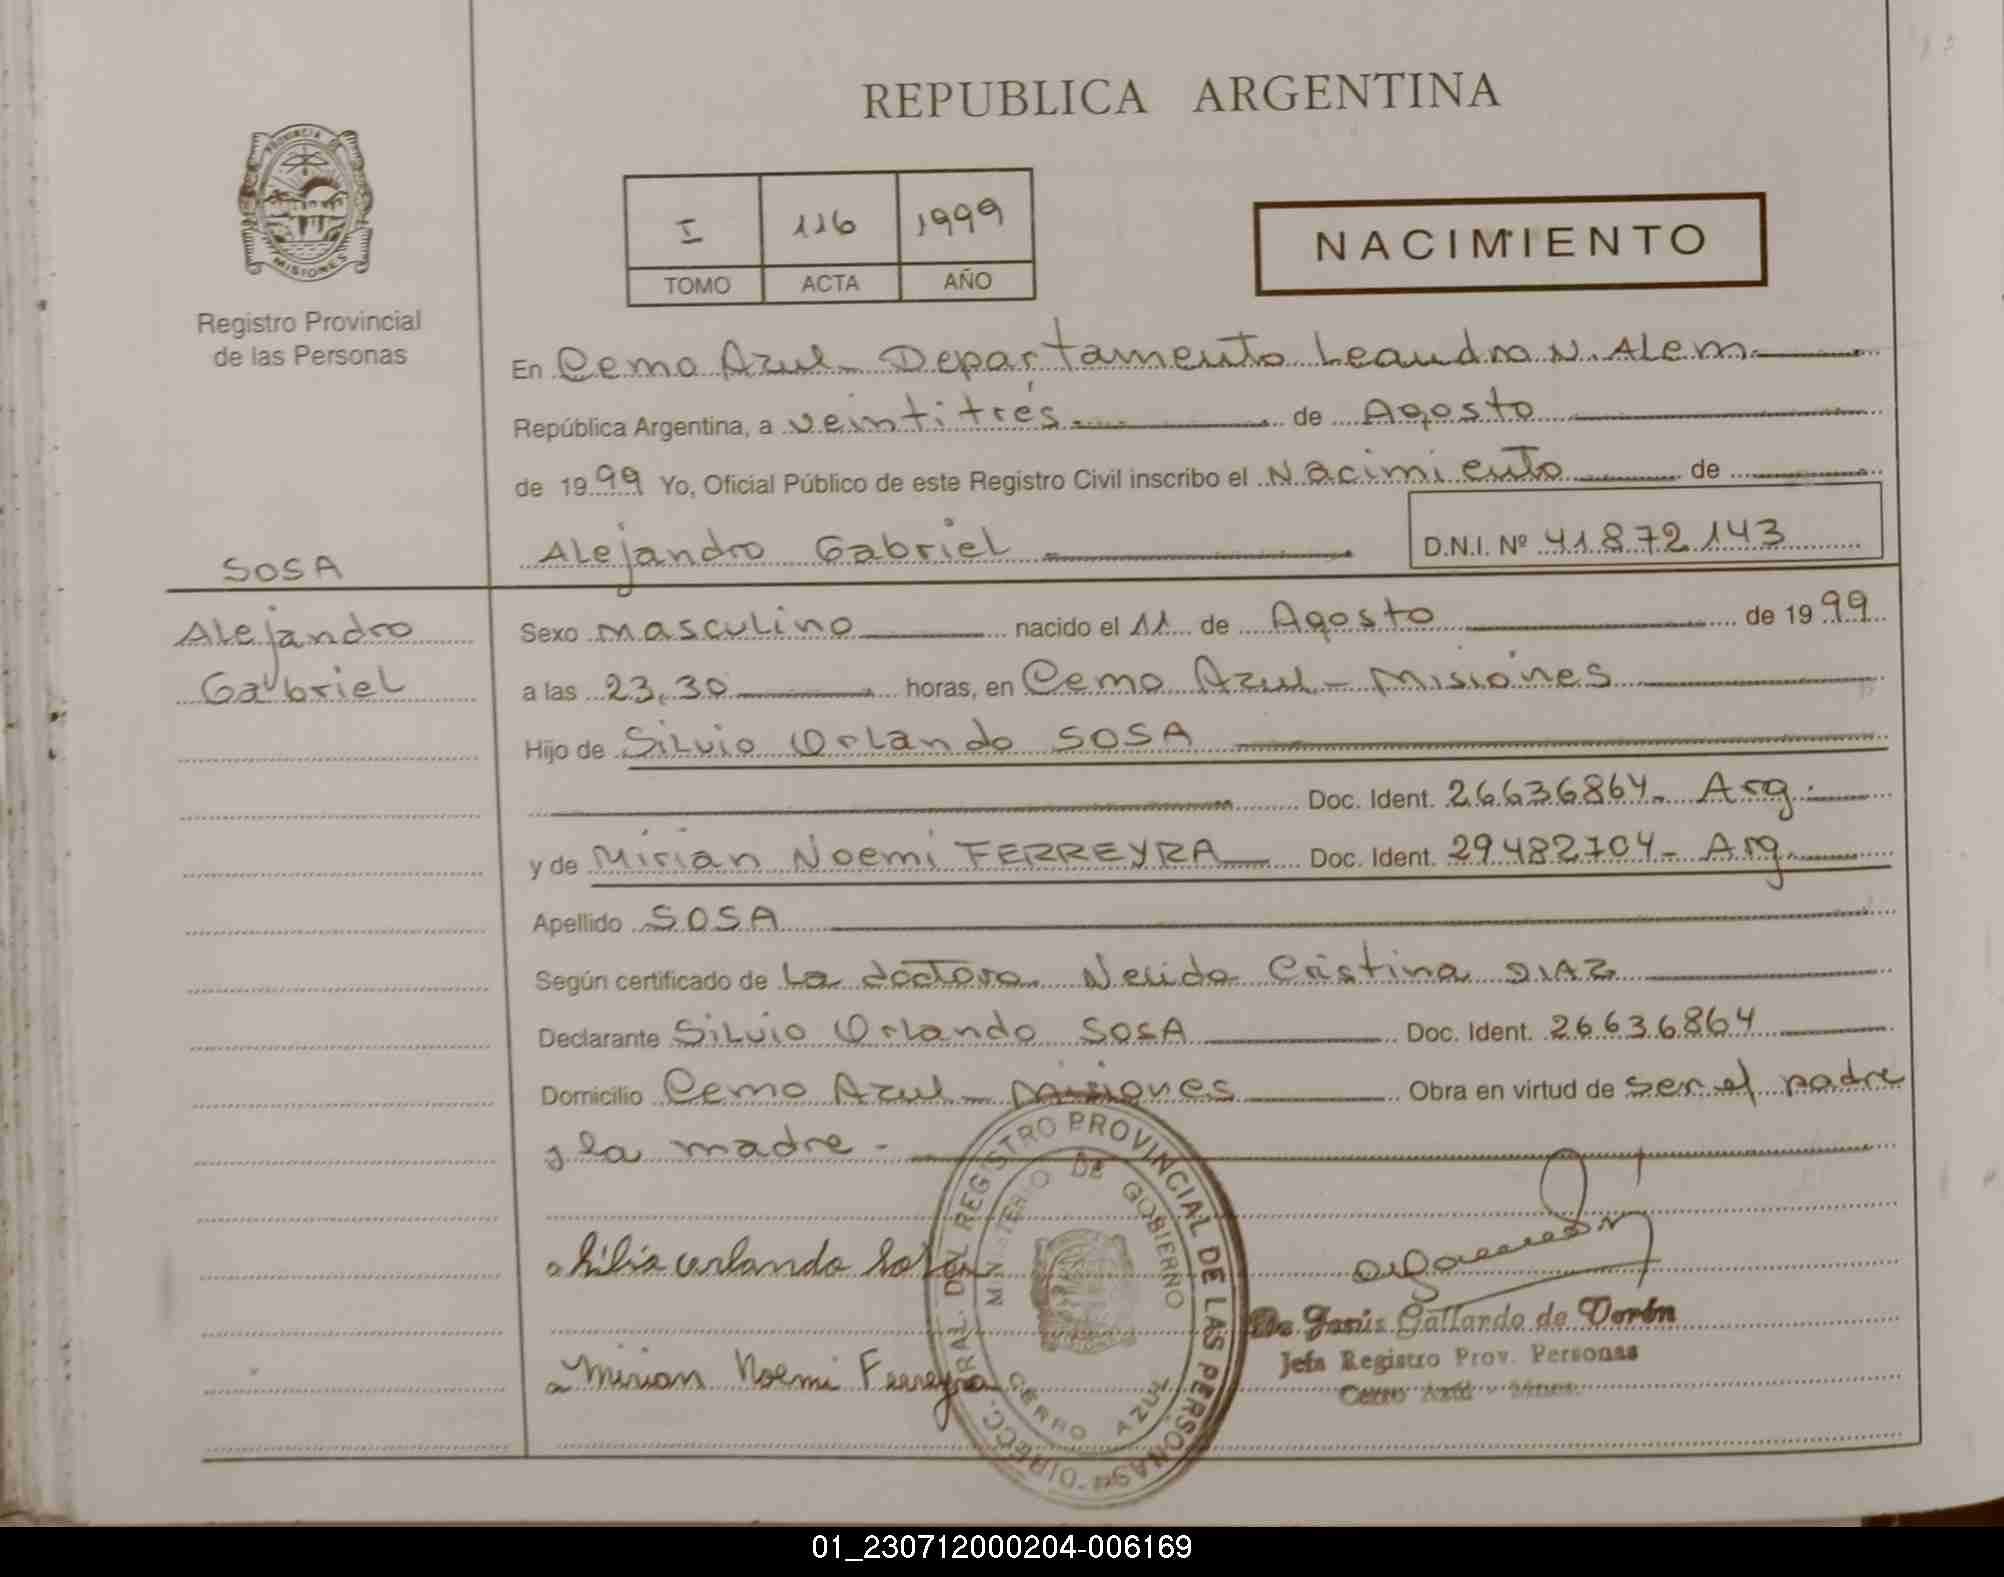 REPUBLICA ARGENTINA
PROVINCIA DE
MISIONES
Registro Provincial
de las Personas
I 116 1999
TOMO ACTA AÑO
NACIMIENTO
En Cerro Azul - Departamento Leandro N. Alem
República Argentina, a veintitrés de Agosto
de 1999 Yo, Oficial Público de este Registro Civil inscribo el Nacimiento de
Alejandro Gabriel D.N.I. Nº 41872143
SOSA
Alejandro
Gabriel
Sexo masculino nacido el 11 de Agosto de 1999
a las 23,30 horas, en Cerro Azul - Misiones
Hijo de Silvio Orlando SOSA
Doc. Ident. 26636864 - Arg.
y de Mirian Noemi FERREYRA Doc. Ident. 29482704 - Arg.
Apellido SOSA
Según certificado de la doctora Nelida Cristina DIAZ
Declarante Silvio Orlando SOSA Doc. Ident. 26636864
Domicilio Cerro Azul - Misiones Obra en virtud de ser el padre
y la madre -
DIRECC. GRAL. DEL REGISTRO PROVINCIAL DE LAS PERSONAS
MINISTERIO DE GOBIERNO
CERRO AZUL
Silvio Orlando Sosa
Mirian Noemi Ferreyra
Gallardo de Verón
Jefa Registro Prov. Personas
Cerro Azul - Mnes.
01_230712000204-006169